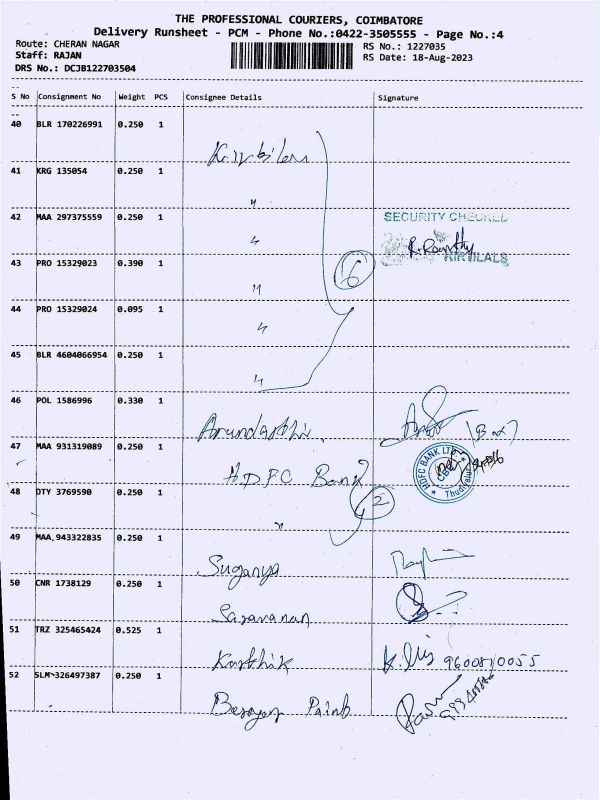 THE PROFESSIONAL COURIERS, COIMBATORE
Delivery Runsheet - PCM - Phone No.:0422-3505555 - Page No.:4
Route: CHERAN NAGAR RS No.: 1227035
Staff: RAJAN RS Date: 18-Aug-2023
DRS No.: DCJB122703504
S No Consignment No Weight PCS Consignee Details Signature
40 BLR 170226991 0.250 1
41 KRG 135054 0.250 1
"
42 MAA 297375559 0.250 1 SECURITY CHECKED
"
43 PRO 15329023 0.390 1 KIRTILALS
" 6
44 PRO 15329024 0.095 1
"
45 BLR 4604066954 0.250 1
"
46 POL 1586996 0.330 1
Arundathi (Box)
47 MAA 931319089 0.250 1
HDFC Bank HDFC BANK LTD
48 DTY 3769590 0.250 1 2
"
49 MAA,943322835 0.250 1
Suganya
50 CNR 1738129 0.250 1
Saravanan
51 TRZ 325465424 0.525 1
Karthik
52 SLM 326497387 0.250 1
Paint